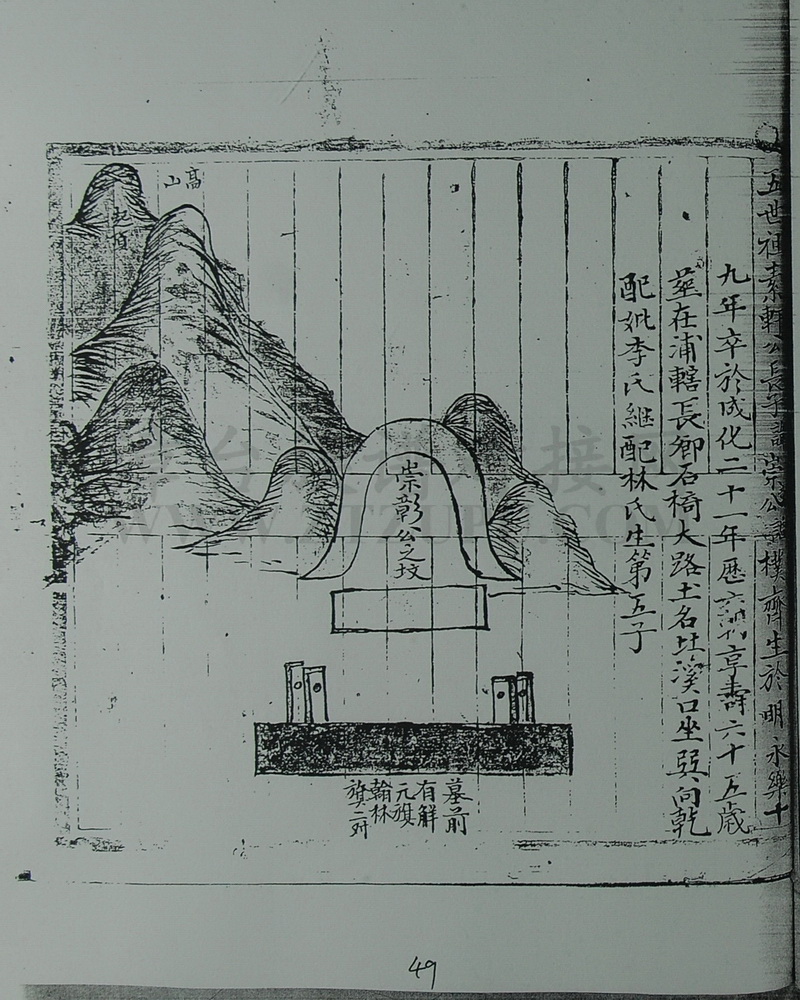 五世祖素軒公長子諱崇公諡樸齋生於明永樂十
九年卒於成化二十一年歷享壽六十五歲
塟在浦轄長鄉石椅大路土名吐溪口坐巽向乾
配妣李氏継配林氏生第五子
高山
崇彰公之坟
墓前
有解
元旗
翰林
旗二对
49